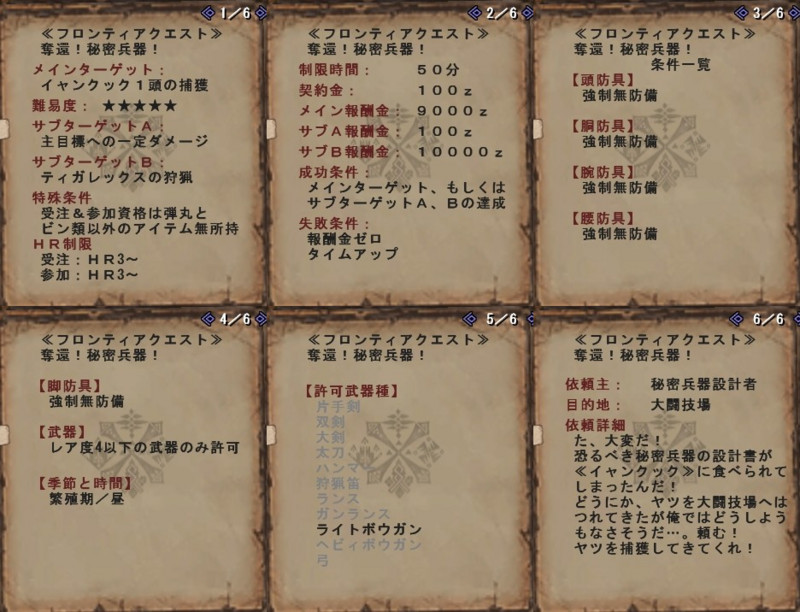 1/6
≪フロンティアクエスト≫
奪還!秘密兵器!
メインターゲット:
イャンクック1頭の捕獲
難易度: ★★★★★
サブターゲットA:
主目標への一定ダメージ
サブターゲットB:
ティガレックスの狩猟
特殊条件
受注&参加資格は弾丸と
ビン類以外のアイテム無所持
HR制限
受注:HR3~
参加:HR3~
2/6
≪フロンティアクエスト≫
奪還!秘密兵器!
制限時間: 50分
契約金: 100z
メイン報酬金: 9000z
サブA報酬金: 100z
サブB報酬金: 10000z
成功条件:
メインターゲット、もしくは
サブターゲットA、Bの達成
失敗条件:
報酬金ゼロ
タイムアップ
3/6
≪フロンティアクエスト≫
奪還!秘密兵器!
条件一覧
【頭防具】
強制無防備
【胴防具】
強制無防備
【腕防具】
強制無防備
【腰防具】
強制無防備
4/6
≪フロンティアクエスト≫
奪還!秘密兵器!
【脚防具】
強制無防備
【武器】
レア度4以下の武器のみ許可
【季節と時間】
繁殖期/昼
5/6
≪フロンティアクエスト≫
奪還!秘密兵器!
【許可武器種】
片手剣
双剣
大剣
太刀
ハンマー
狩猟笛
ランス
ガンランス
ライトボウガン
ヘビィボウガン
弓
6/6
≪フロンティアクエスト≫
奪還!秘密兵器!
依頼主: 秘密兵器設計者
目的地: 大闘技場
依頼詳細
た、大変だ!
恐るべき秘密兵器の設計書が
≪イャンクック≫に食べられて
しまったんだ!
どうにか、ヤツを大闘技場へは
つれてきたが俺ではどうしよう
もなさそうだ…。頼む!
ヤツを捕獲してきてくれ!